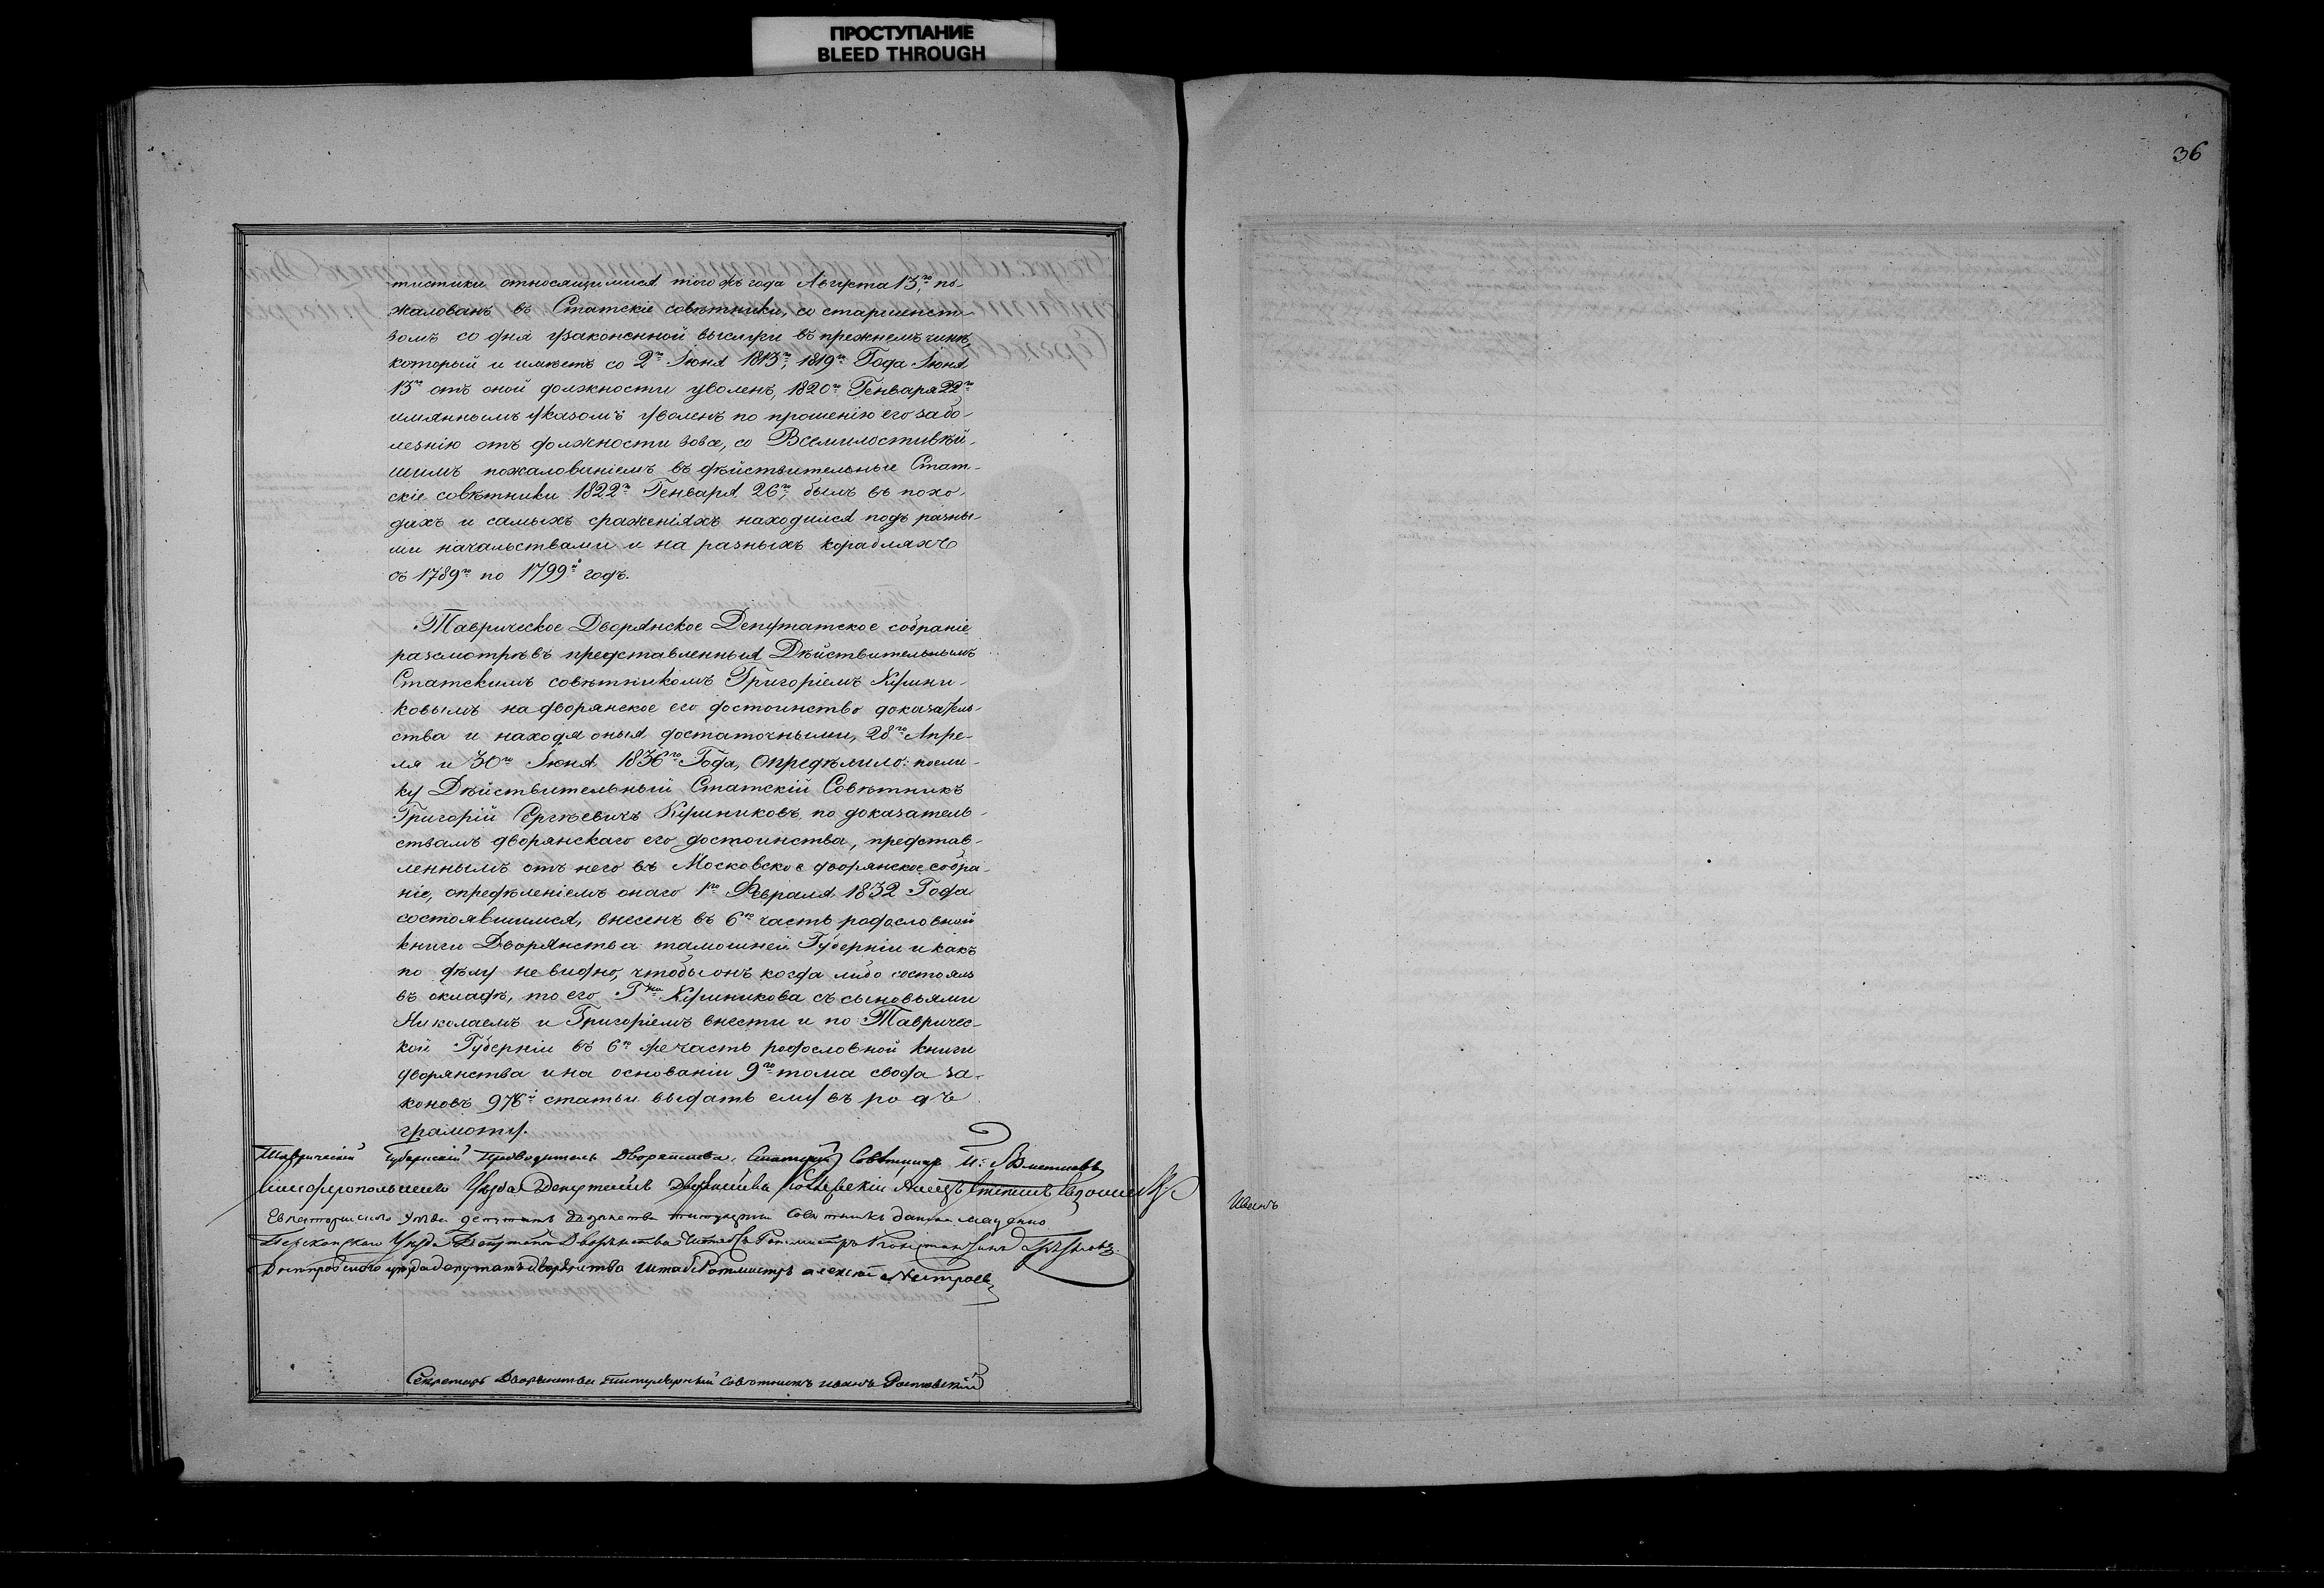 ПРОСТУПАНИЕ
BLEED THROUGH
36
тистики относящимися, тогожъ года Августа 13го, по-
жалованъ въ Статскіе совѣтники, со старшинст-
вомъ со дня узаконенной выслуги въ прежнемъ чинѣ,
который и имѣетъ со 2го Іюня 1813го, 1819го Года Іюня
13го отъ оной должности уволенъ, 1820го Генваря 22го
имяннымъ указомъ уволенъ по прошенію его за бо-
лезнію отъ должности вовсе, со Всемилостивѣй-
шимъ пожалованіемъ въ дѣйствительные Стат-
скіе совѣтники 1822го Генваря 26го, былъ въ похо-
дахъ и самыхъ сраженіяхъ находился подъ разны-
ми начальствами и на разныхъ корабляхъ
съ 1789го по 1799й годъ.
Таврическое Дворянское Депутатское собраніе
разсмотрѣвъ представленныя Дѣйствительнымъ
Статскимъ совѣтникомъ Григоріемъ Кушни-
ковымъ на дворянское его достоинство доказатель-
ства и находя оныя достаточными, 28го Апре-
ля и 30го Іюня 1836го Года, Опредѣлило: поели-
ку Дѣйствительный Статскій Совѣтникъ
Григорій Сергѣевичъ Кушниковъ по доказатель-
ствамъ дворянскаго его достоинства, представ-
леннымъ отъ него въ Московское дворянское собра-
ніе, опредѣленіемъ онаго 1го Февраля 1832 Года
состоявшимся, внесенъ въ 6ю часть родословной
книги Дворянства тамошней Губерніи и какъ
по дѣлу не видно, чтобы онъ когда либо состоялъ
въ окладѣ, то его Гна Кушникова съ сыновьями
Николаемъ и Григоріемъ внести и по Тавричес-
кой Губерніи въ 6ю же часть родословной книги
дворянства и на основаніи 9го тома свода за-
коновъ 976й статьи выдать ему въ родъ
грамоту.
Таврическій Губернскій Предводитель Дворянства, Статскій Совѣтникъ
Симферопольскаго Уѣзда Депутатъ Дворянства
Евпаторійскаго Уѣзда депутатъ Дворянства титулярный Совѣтникъ
Перекопскаго Уѣзда Депутатъ Дворянства Штабсъ Ротмистръ Константинъ
Днепровскаго уѣзда депутатъ дворянства Штабсъ Ротмистръ алексей
Секретарь Дворянства Титулярный Совѣтникъ Иванъ